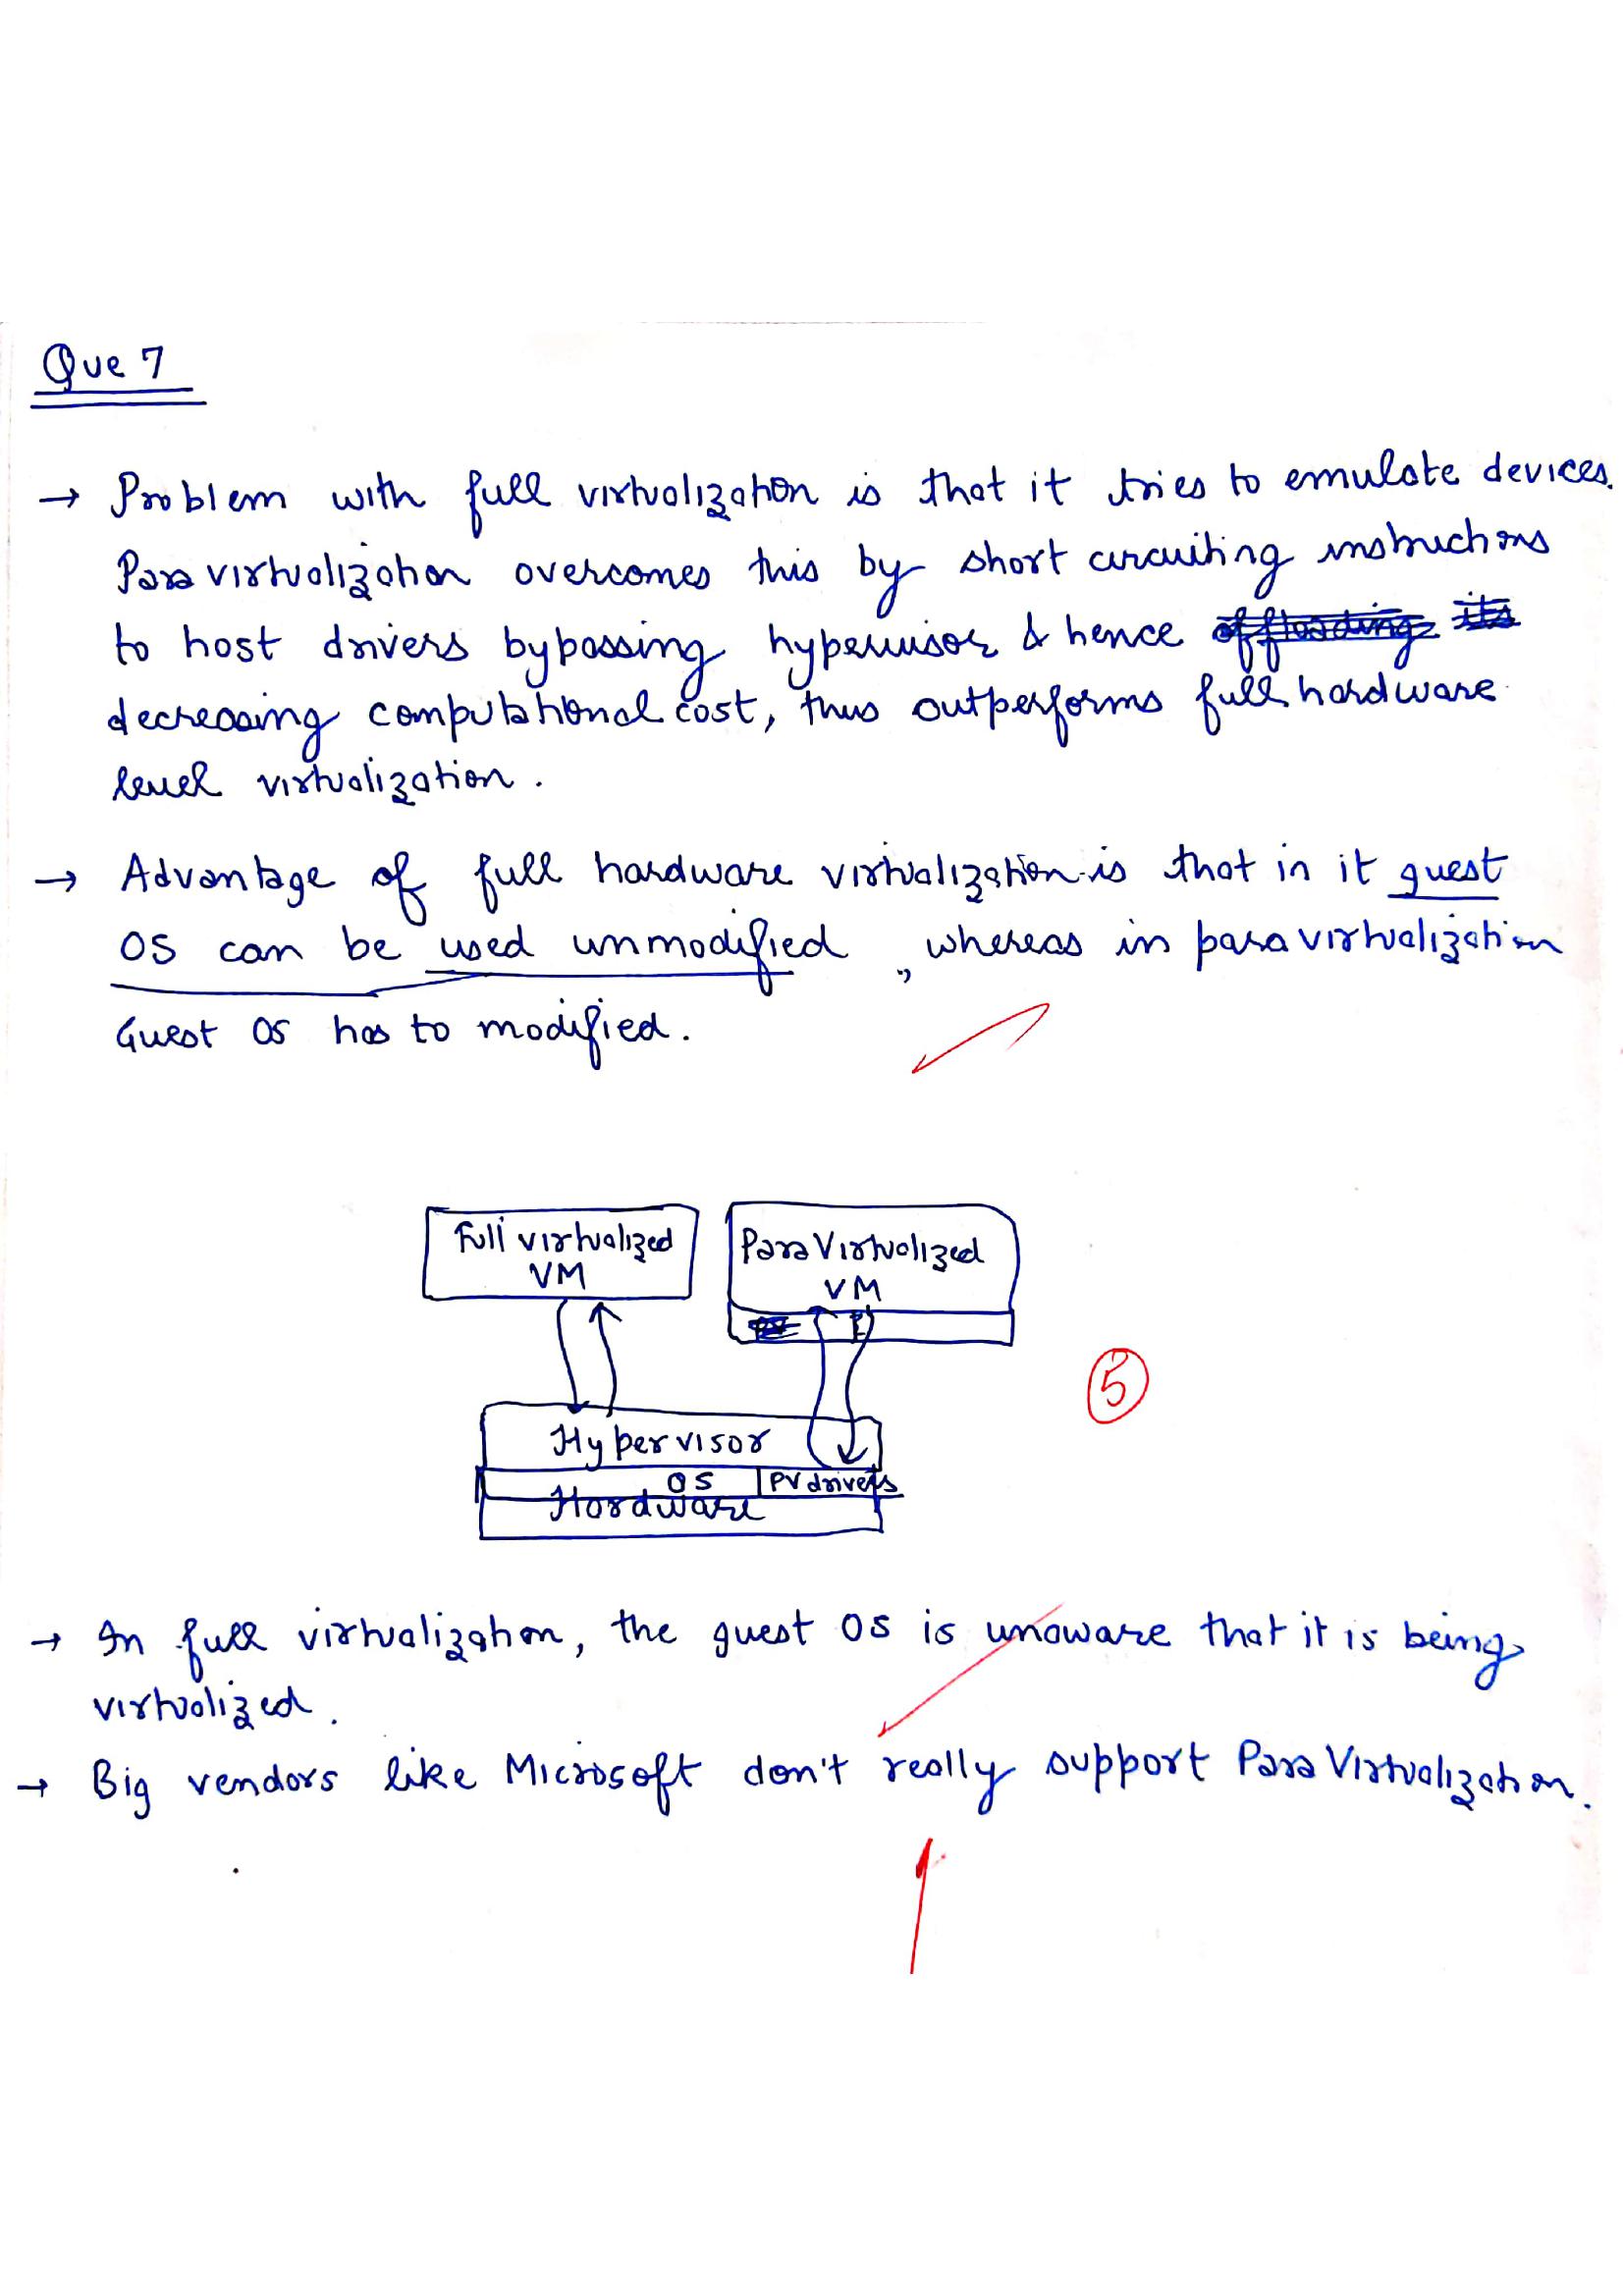 Que 7
→ Problem with full virtualization is that it tries to emulate devices.
Para virtualization overcomes this by short circuiting instructions
to host drivers bypassing hypervisor & hence
decreasing computational cost, thus outperforms full hardware
level virtualization.
→ Advantage of full hardware virtualization is that in it guest
OS can be used unmodified, whereas in para virtualization
Guest OS has to modified.
Full virtualized
VM
Para Virtualized
VM
5
Hypervisor
OS PV drivers
Hardware
→ In full virtualization, the guest OS is unaware that it is being
virtualized.
→ Big vendors like Microsoft don't really support Para Virtualization.